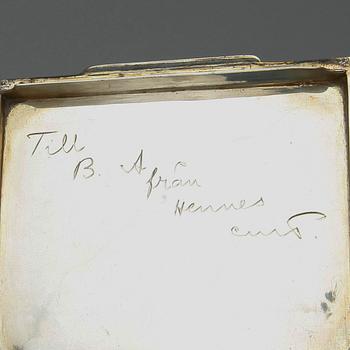 Till
B. A
från
Hennes